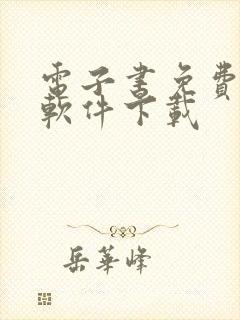 電子書免費
軟件下載
岳華峰